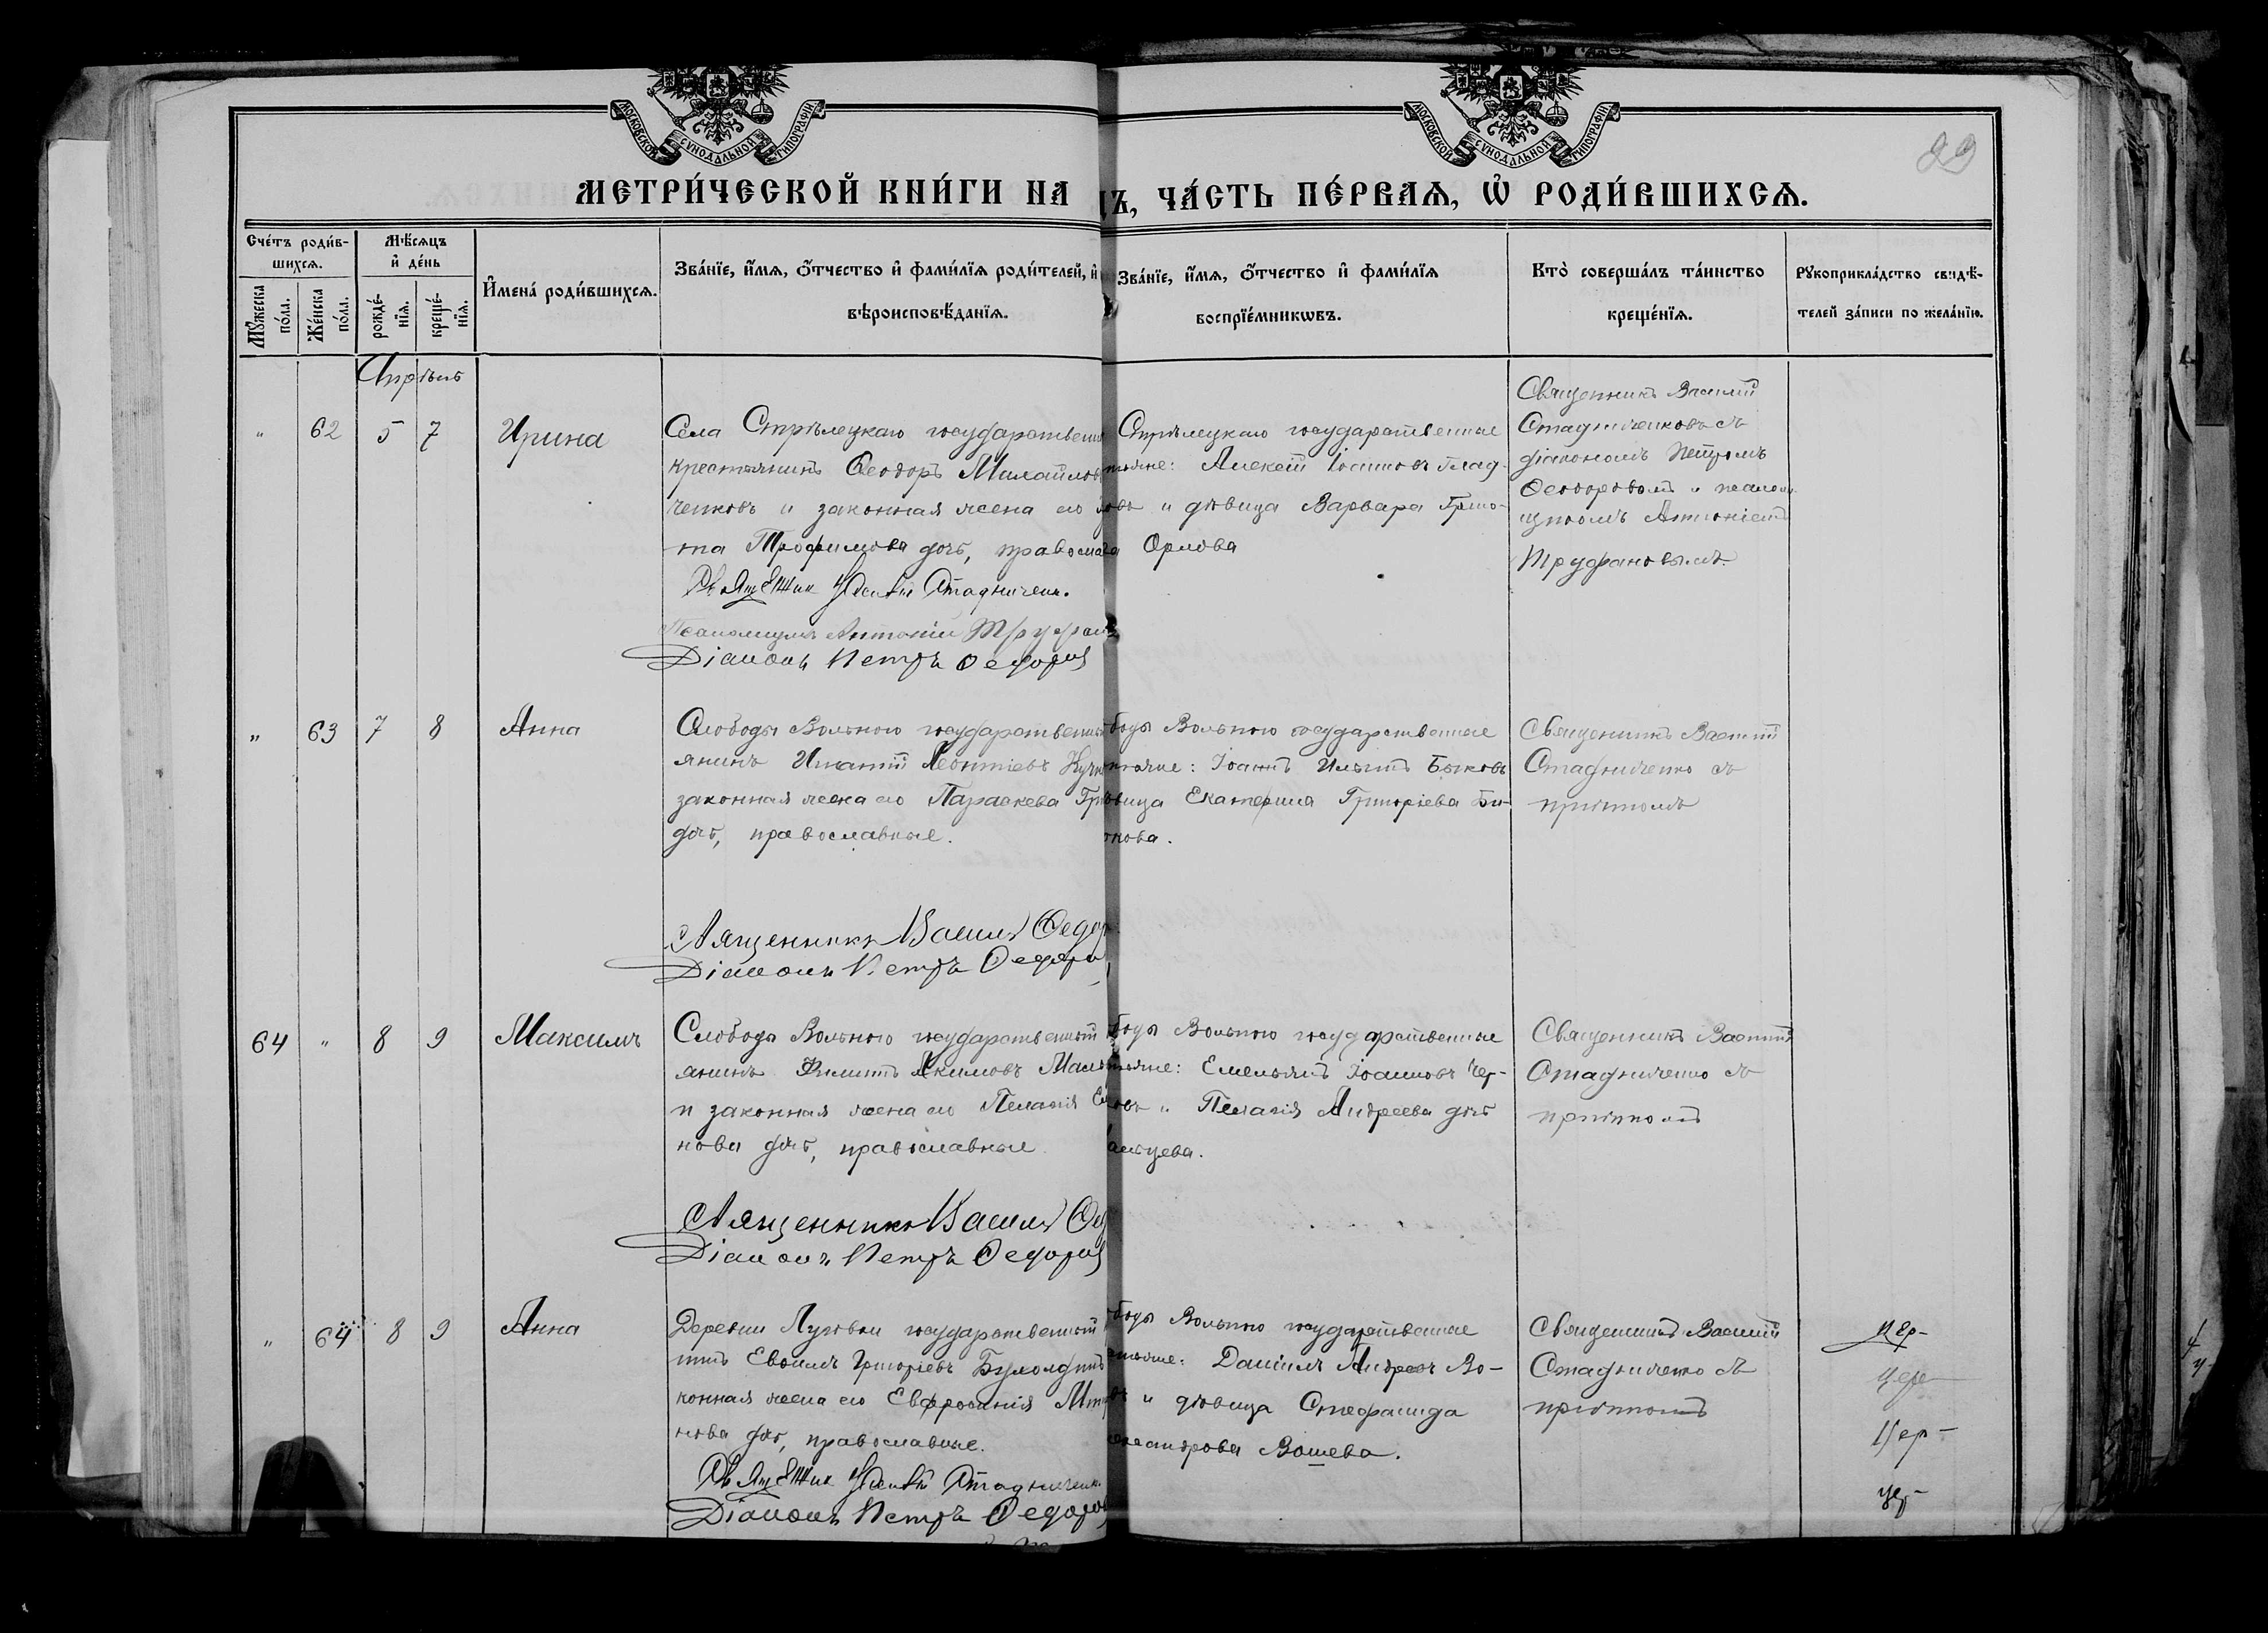 МОСКОВСКОЙ СѴНОДАЛЬНОЙ ТИПОГРАФІИ
МОСКОВСКОЙ СѴНОДАЛЬНОЙ ТИПОГРАФІИ
29
МЕТРИ́ЧЕСКОЙ КНИ́ГИ НА
Ъ, ЧА́СТЬ ПЕ́РВАѦ, Ѡ҆ РОДИ́ВШИХСѦ.
Сче́тъ роди́в-
шихсѧ.
Мѣ́сѧцъ
и҆ де́нь
Мꙋ́жеска
по́ла.
Же́нска
по́ла.
рожде́-
нїѧ.
креще́-
нїѧ.
И҆мена̀ роди́вшихсѧ.
Зва́нїе, и҆́мѧ, ѻ҆́тчество и҆ фами́лїѧ роди́телей, и҆
вѣроисповѣ́данїѧ.
Зва́нїе, и҆́мѧ, ѻ҆́тчество и҆ фами́лїѧ
воспрїе́мникѡвъ.
Кто̀ соверша́лъ та́инство
креще́нїѧ.
Рꙋкоприкла́дство свидѣ́-
телей за́писи по жела́нїю.
Апрѣль
" 62 5 7 Ирина
Села Стрѣлецкаго государственн
крестьянинъ Ѳеодоръ Михайлов
ченковъ и законная жена его
та Трофимова дочь, правосла
Священник Василій Стадничен.
Псаломщикъ Антоній Труфан
Діаконъ Петръ Ѳедоров
Стрѣлецкаго государственные
тьяне: Алексѣй Іоанновъ Глад-
ковъ и дѣвица Варвара Григо-
Орлова
Священникъ Василій
Стадниченковъ съ
діакономъ Петромъ
Ѳеодоровымъ и псалом
щикомъ Антоніемъ
Труфановымъ.
" 63 7 8 Анна
Слободы Вольного государственны
янинъ Игнатій Леонтіевъ
законная жена его Параскева Гри
дочь, православные.
Священникъ Василій Ѳедор
Діаконъ Петръ Ѳедоров
боды Вольного государственные
тьяне: Іоаннъ Ильинъ Быковъ
вица Екатерина Григоріева Бы-
кова.
Священникъ Василій
Стадниченко съ
причтомъ
64 " 8 9 Максимъ
Слободы Вольного государственный
янинъ Филиппъ Акимовъ Маль
и законная жена его Пелагія
нова дочь, православные
Священникъ Василій Ѳед
Діаконъ Петръ Ѳедоров
боды Вольного государственные
тьяне: Емельянъ Іоанновъ Чер-
овъ и Пелагія Андреева дочь
альцева.
Священникъ Василій
Стадниченко съ
причтомъ
" 64 8 9 Анна
Деревни Луговки государственный
нинъ Евфимъ Григоріевъ
конная жена его Евфросинія
нова дочь, православные.
Священник Василій Стадниченк.
Діаконъ Петръ Ѳедоров
боды Вольного государственные
тьяне: Даніилъ Андреевъ Во-
и дѣвица Стефанида
ександрова Вошева.
Священникъ Василій
Стадниченко съ
причтомъ